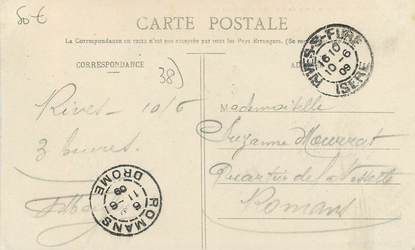 50 €
CARTE POSTALE
La Correspondance au recto n'est pas acceptée par tous les Pays étrangers. (Se
CORRESPONDANCE
38)
RIVES-S-FURE
16 10
10 - 6
09
ISERE
Rives 10/6
3 heures.
Mademoiselle
Suzanne Mourrat
Quartier de la
Romans
ROMANS
11 - 6
09
DROME